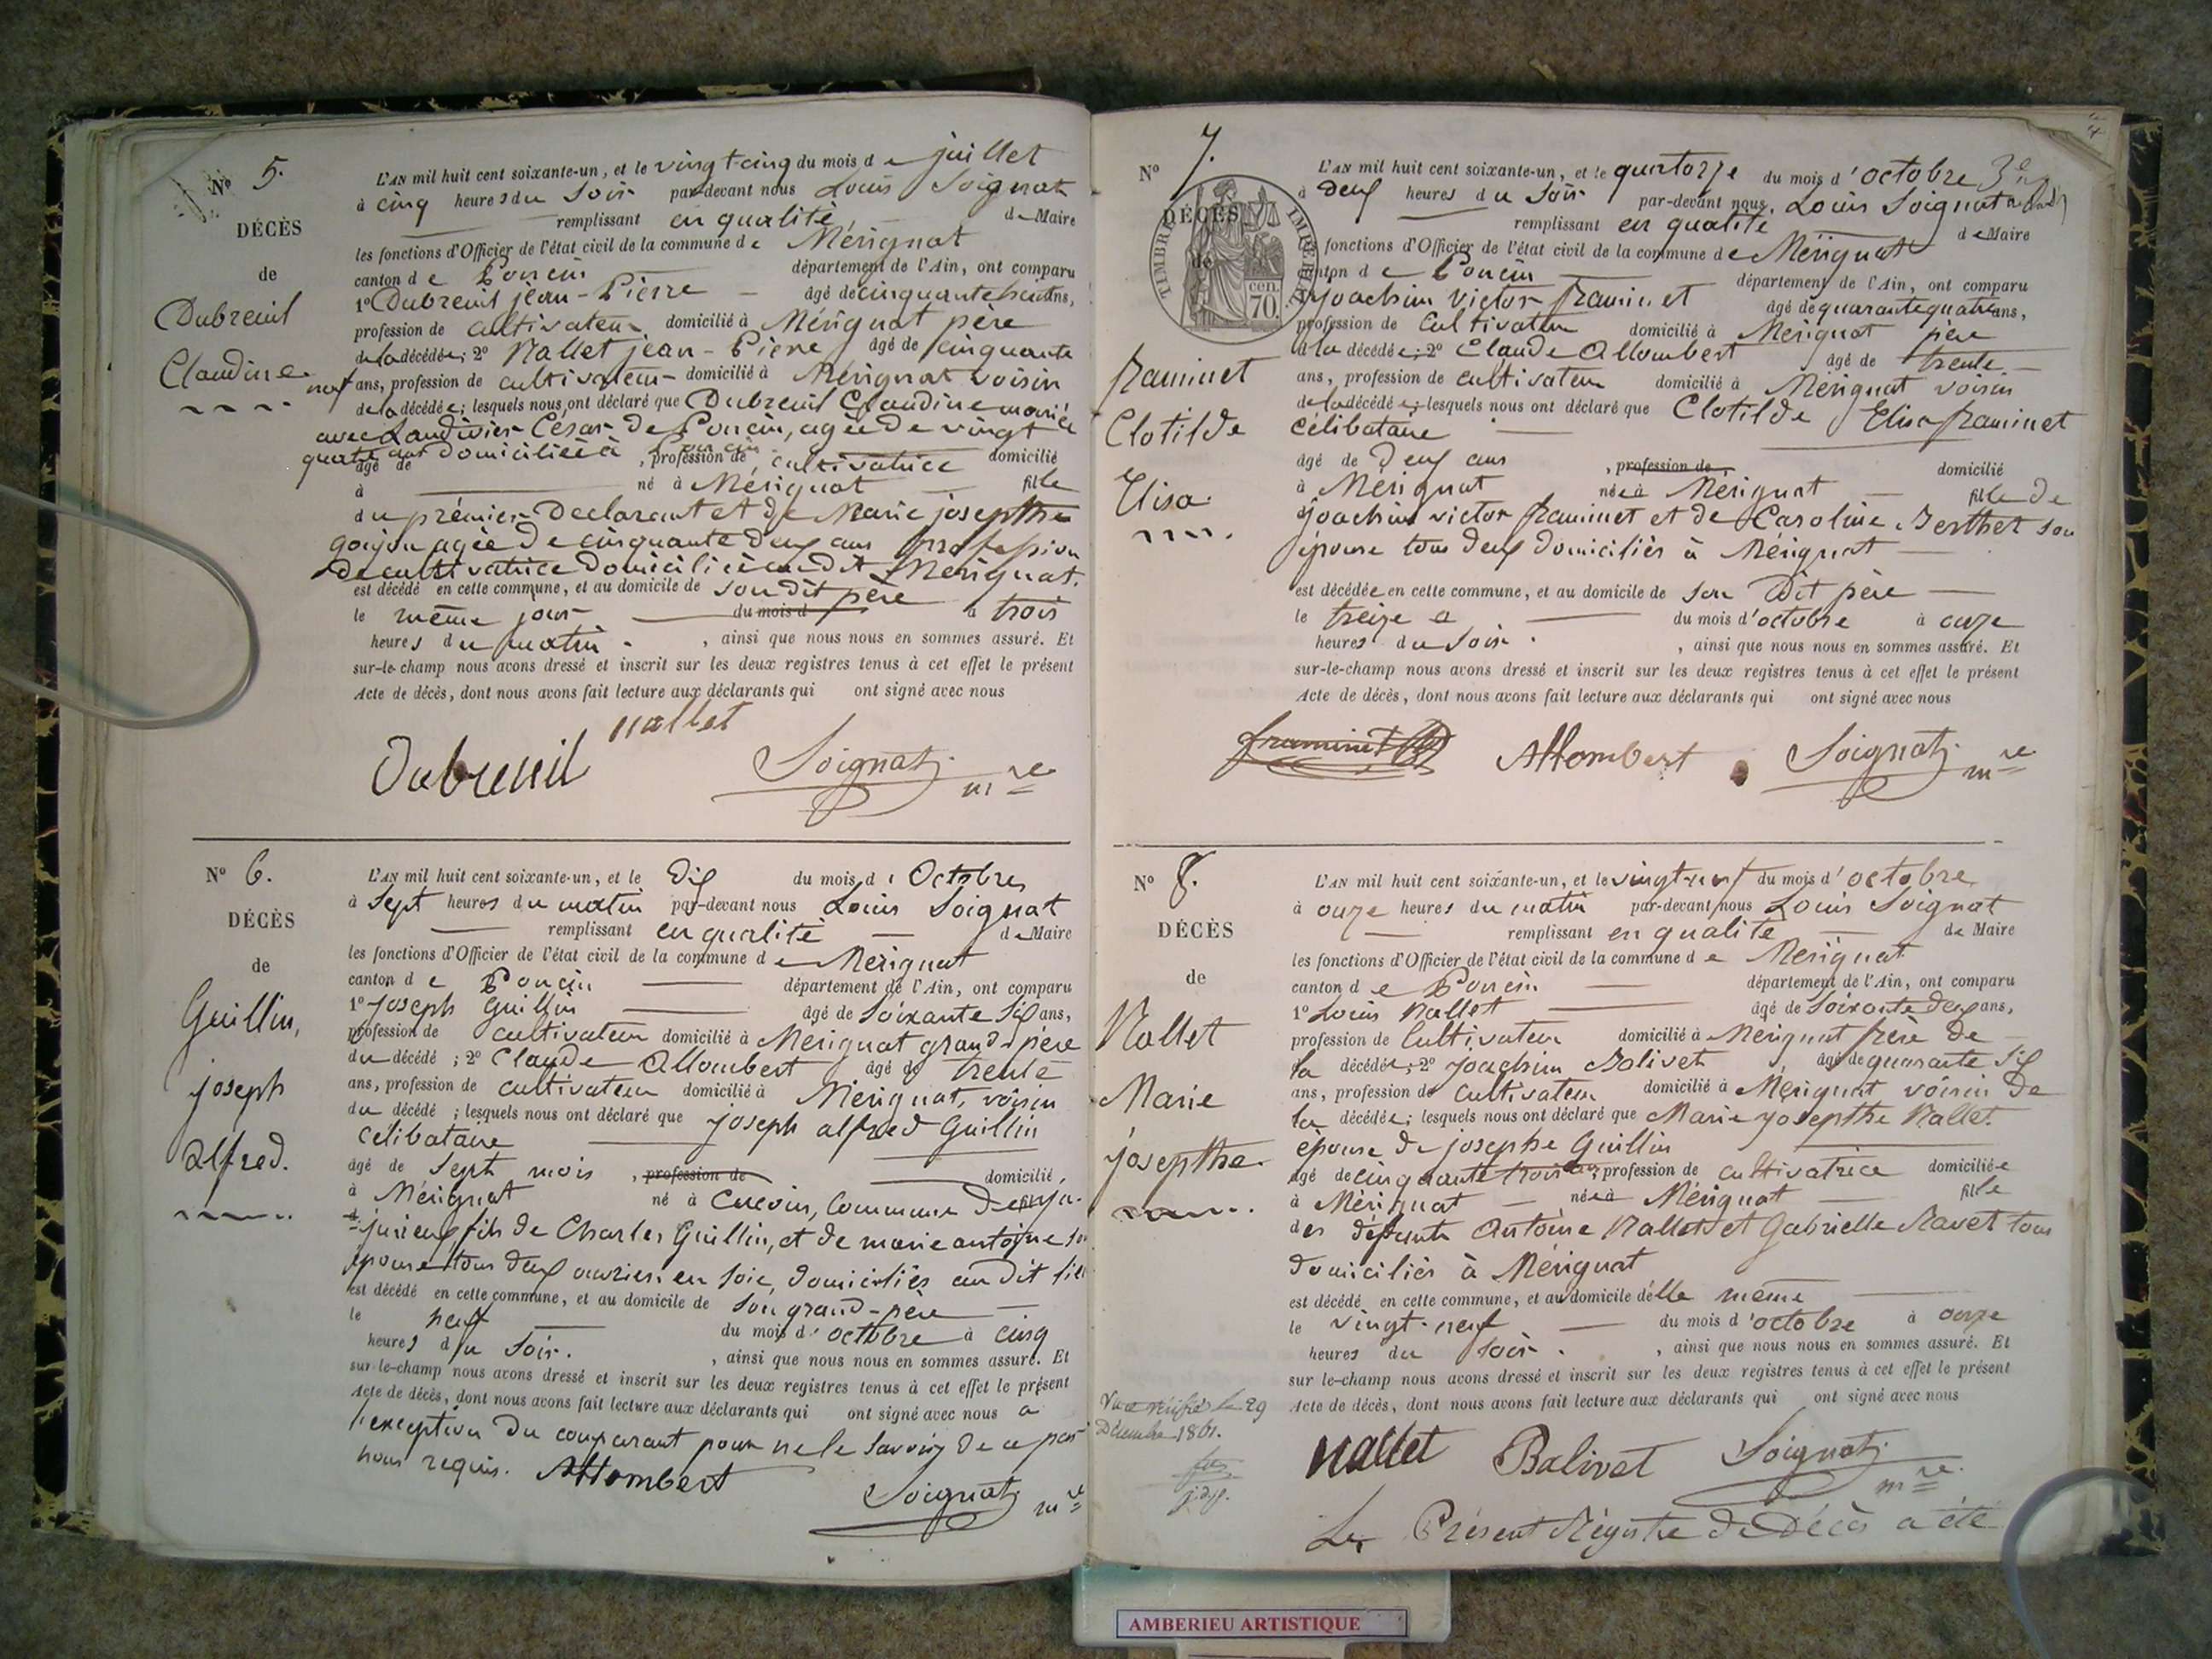 Nº 5.
DÉCÈS
de
Dubreuil
Claudine
L'AN mil huit cent soixante-un, et le vingt-cinq du mois de juillet
à cinq heures du soir par-devant nous Louis Soignat
remplissant en qualité de Maire
les fonctions d'Officier de l'état civil de la commune de Mérignat
canton de Poncin département de l'Ain, ont comparu
1º Dubreuil jean-Pierre âgé de cinquante huit ans,
profession de cultivateur domicilié à Mérignat père
de la décédée; 2º Nallet jean-Pierre âgé de cinquante
neuf ans, profession de cultivateur domicilié à Mérignat voisin
de la décédée; lesquels nous ont déclaré que Dubreuil Claudine mariée
avec Laudivier César de Poncin, agée de vingt
quatre ans domiciliée à Poncin
âgé de , profession de cultivatrice domicilié
à né à Mérignat fille
du prémier Declarant et de Marie josepthe
goujon agée de cinquante deux ans profession
de cultivatrice domiciliée au dit Mérignat.
est décédé en cette commune, et au domicile de son dit père
le même jour du mois d à trois
heures du matin , ainsi que nous nous en sommes assuré. Et
sur-le-champ nous avons dressé et inscrit sur les deux registres tenus à cet effet le présent
Acte de décès, dont nous avons fait lecture aux déclarants qui ont signé avec nous
nallet
Dubreuil Soignat mre
Nº 6.
DÉCÈS
de
Guillin,
joseph
alfred.
L'AN mil huit cent soixante-un, et le dix du mois d'Octobre
à Sept heures du matin par-devant nous Louis Soignat
remplissant en qualité de Maire
les fonctions d'Officier de l'état civil de la commune de Mérignat
canton de Poncin département de l'Ain, ont comparu
1º Joseph Guillin âgé de Soixante Six ans,
profession de cultivateur domicilié à Mérignat grand-père
du décédé; 2º Claude Allombert âgé de trente
ans, profession de cultivateur domicilié à Mérignat, voisin
du décédé; lesquels nous ont déclaré que joseph alfred Guillin
célibataire
âgé de Sept mois , profession de domicilié
à Mérignat né à Cuevin, Commune de
jurieux, fils de Charles Guillin, et de marie antoine
épouse tous deux ouvriers en soie, domiciliés au dit
est décédé en cette commune, et au domicile de Son grand-père
le neuf du mois d'octobre à cinq
heures du Soir. , ainsi que nous nous en sommes assuré. Et
sur-le-champ nous avons dressé et inscrit sur les deux registres tenus à cet effet le présent
Acte de décès, dont nous avons fait lecture aux déclarants qui ont signé avec nous a
l'exception du comparant pour ne le Savoir de ce par
nous requis. Allombert
Soignat mre
Nº 7.
DÉCÈS
de
TIMBRE IMPÉRIAL
70 cen.
Raminet
Clotilde
Elisa.
L'AN mil huit cent soixante-un, et le quatorze du mois d'octobre
à deux heures du Soir par-devant nous Louis Soignat
remplissant en qualité de Maire
fonctions d'Officier de l'état civil de la commune de Mérignat
canton de Poncin département de l'Ain, ont comparu
Joachim Victor framinet âgé de quarante quatre ans,
profession de Cultivateur domicilié à Mérignat père
d la décédée; 2º Claude Allombert âgé de trente
ans, profession de cultivateur domicilié à Mérignat voisin
de la décédée; lesquels nous ont déclaré que Clotilde Elisa framinet
célibataire
âgé de deux ans , profession de domicilié
à Mérignat née à Mérignat fille de
joachim victor framinet et de Caroline Berthet son
épouse tous deux domiciliés à Mérignat
est décédée en cette commune, et au domicile de son dit père
le treize du mois d'octobre à onze
heures du Soir. , ainsi que nous nous en sommes assuré. Et
sur-le-champ nous avons dressé et inscrit sur les deux registres tenus à cet effet le présent
Acte de décès, dont nous avons fait lecture aux déclarants qui ont signé avec nous
framinet Allombert Soignat mre
Nº 8.
DÉCÈS
de
Nallet
Marie
josepthe.
L'AN mil huit cent soixante-un, et le vingt-neuf du mois d'octobre
à onze heures du matin par-devant nous Louis Soignat
remplissant en qualité de Maire
les fonctions d'Officier de l'état civil de la commune de Mérignat
canton de Poncin département de l'Ain, ont comparu
1º Louis Nallet âgé de Soixante deux ans,
profession de Cultivateur domicilié à Mérignat frère de
la décédée; 2º Joachim Balivet âgé de quarante Six
ans, profession de Cultivateur domicilié à Mérignat voisin de
la décédée; lesquels nous ont déclaré que Marie Josepthe Nallet.
épouse de josephe Guillin
âgé de cinquante trois ans, profession de cultivatrice domiciliée
à Mérignat née à Mérignat fille
des défunts Antoine Nallet et Gabrielle Ravet tous
domiciliés à Mérignat
est décédé en cette commune, et au domicile d'elle même
le vingt-neuf du mois d'octobre à onze
heures du soir. , ainsi que nous nous en sommes assuré. Et
sur le-champ nous avons dressé et inscrit sur les deux registres tenus à cet effet le présent
Acte de décès, dont nous avons fait lecture aux déclarants qui ont signé avec nous
Vu et vérifié le 29
Décembre 1861.
Nallet Balivet Soignat mre
Le Présent Régistre de Décès a été
AMBERIEU ARTISTIQUE